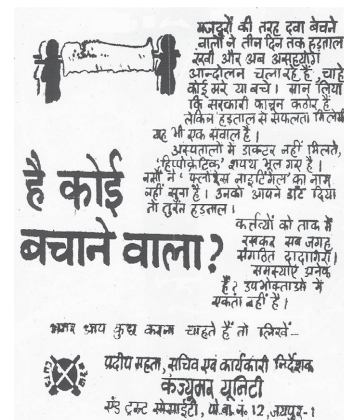 मजदूरों की तरह दवा बेचने
वालों ने तीन दिन तक हड़ताल
रखी और अब असहयोग
आन्दोलन चला रहे हैं, चाहे
कोई मरे या बचे। मान लिया
कि सरकारी कानून कठोर हैं
लेकिन हड़ताल से सफलता मिलेगी
यह भी एक सवाल है।
अस्पतालों में डाक्टर नहीं मिलते,
'हिप्पोक्रेटिक' शपथ भूल गए हैं।
नर्सों ने 'फ्लोरेंस नाइटिंगेल' का नाम
नहीं सुना है। उनको आपने डाँट दिया
तो तुरन्त हड़ताल।
है कोई
बचाने वाला?
कर्त्तव्यों को ताक में
रखकर सब जगह
संगठित दादागिरी।
समस्याएँ अनेक
हैं? उपभोक्ताओं में
एकता नहीं है।
अगर आप कुछ करना चाहते हैं तो लिखें...
प्रदीप महता, सचिव एवं कार्यकारी निर्देशक
कंज्यूमर यूनिटी
एंड ट्रस्ट सोसाइटी, पो.बॉ.नं. 12, जयपुर-1